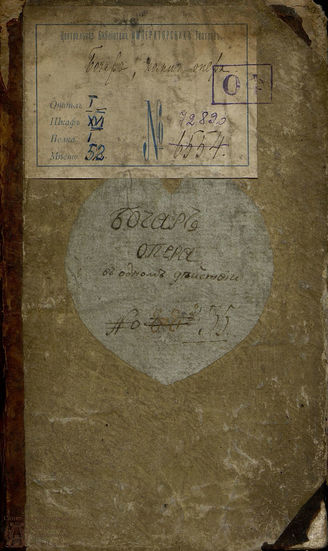 Центральная Библиотека ИМПЕРАТОРСКИХЪ Театровъ
Бочаръ, опера
О
Отдѣлъ I
Шкафъ XVI
Полка I
Мѣсто 52
№ 72890
6554.
БОЧАРЪ
ОПЕРА
въ одномъ дѣйствіи
No 35